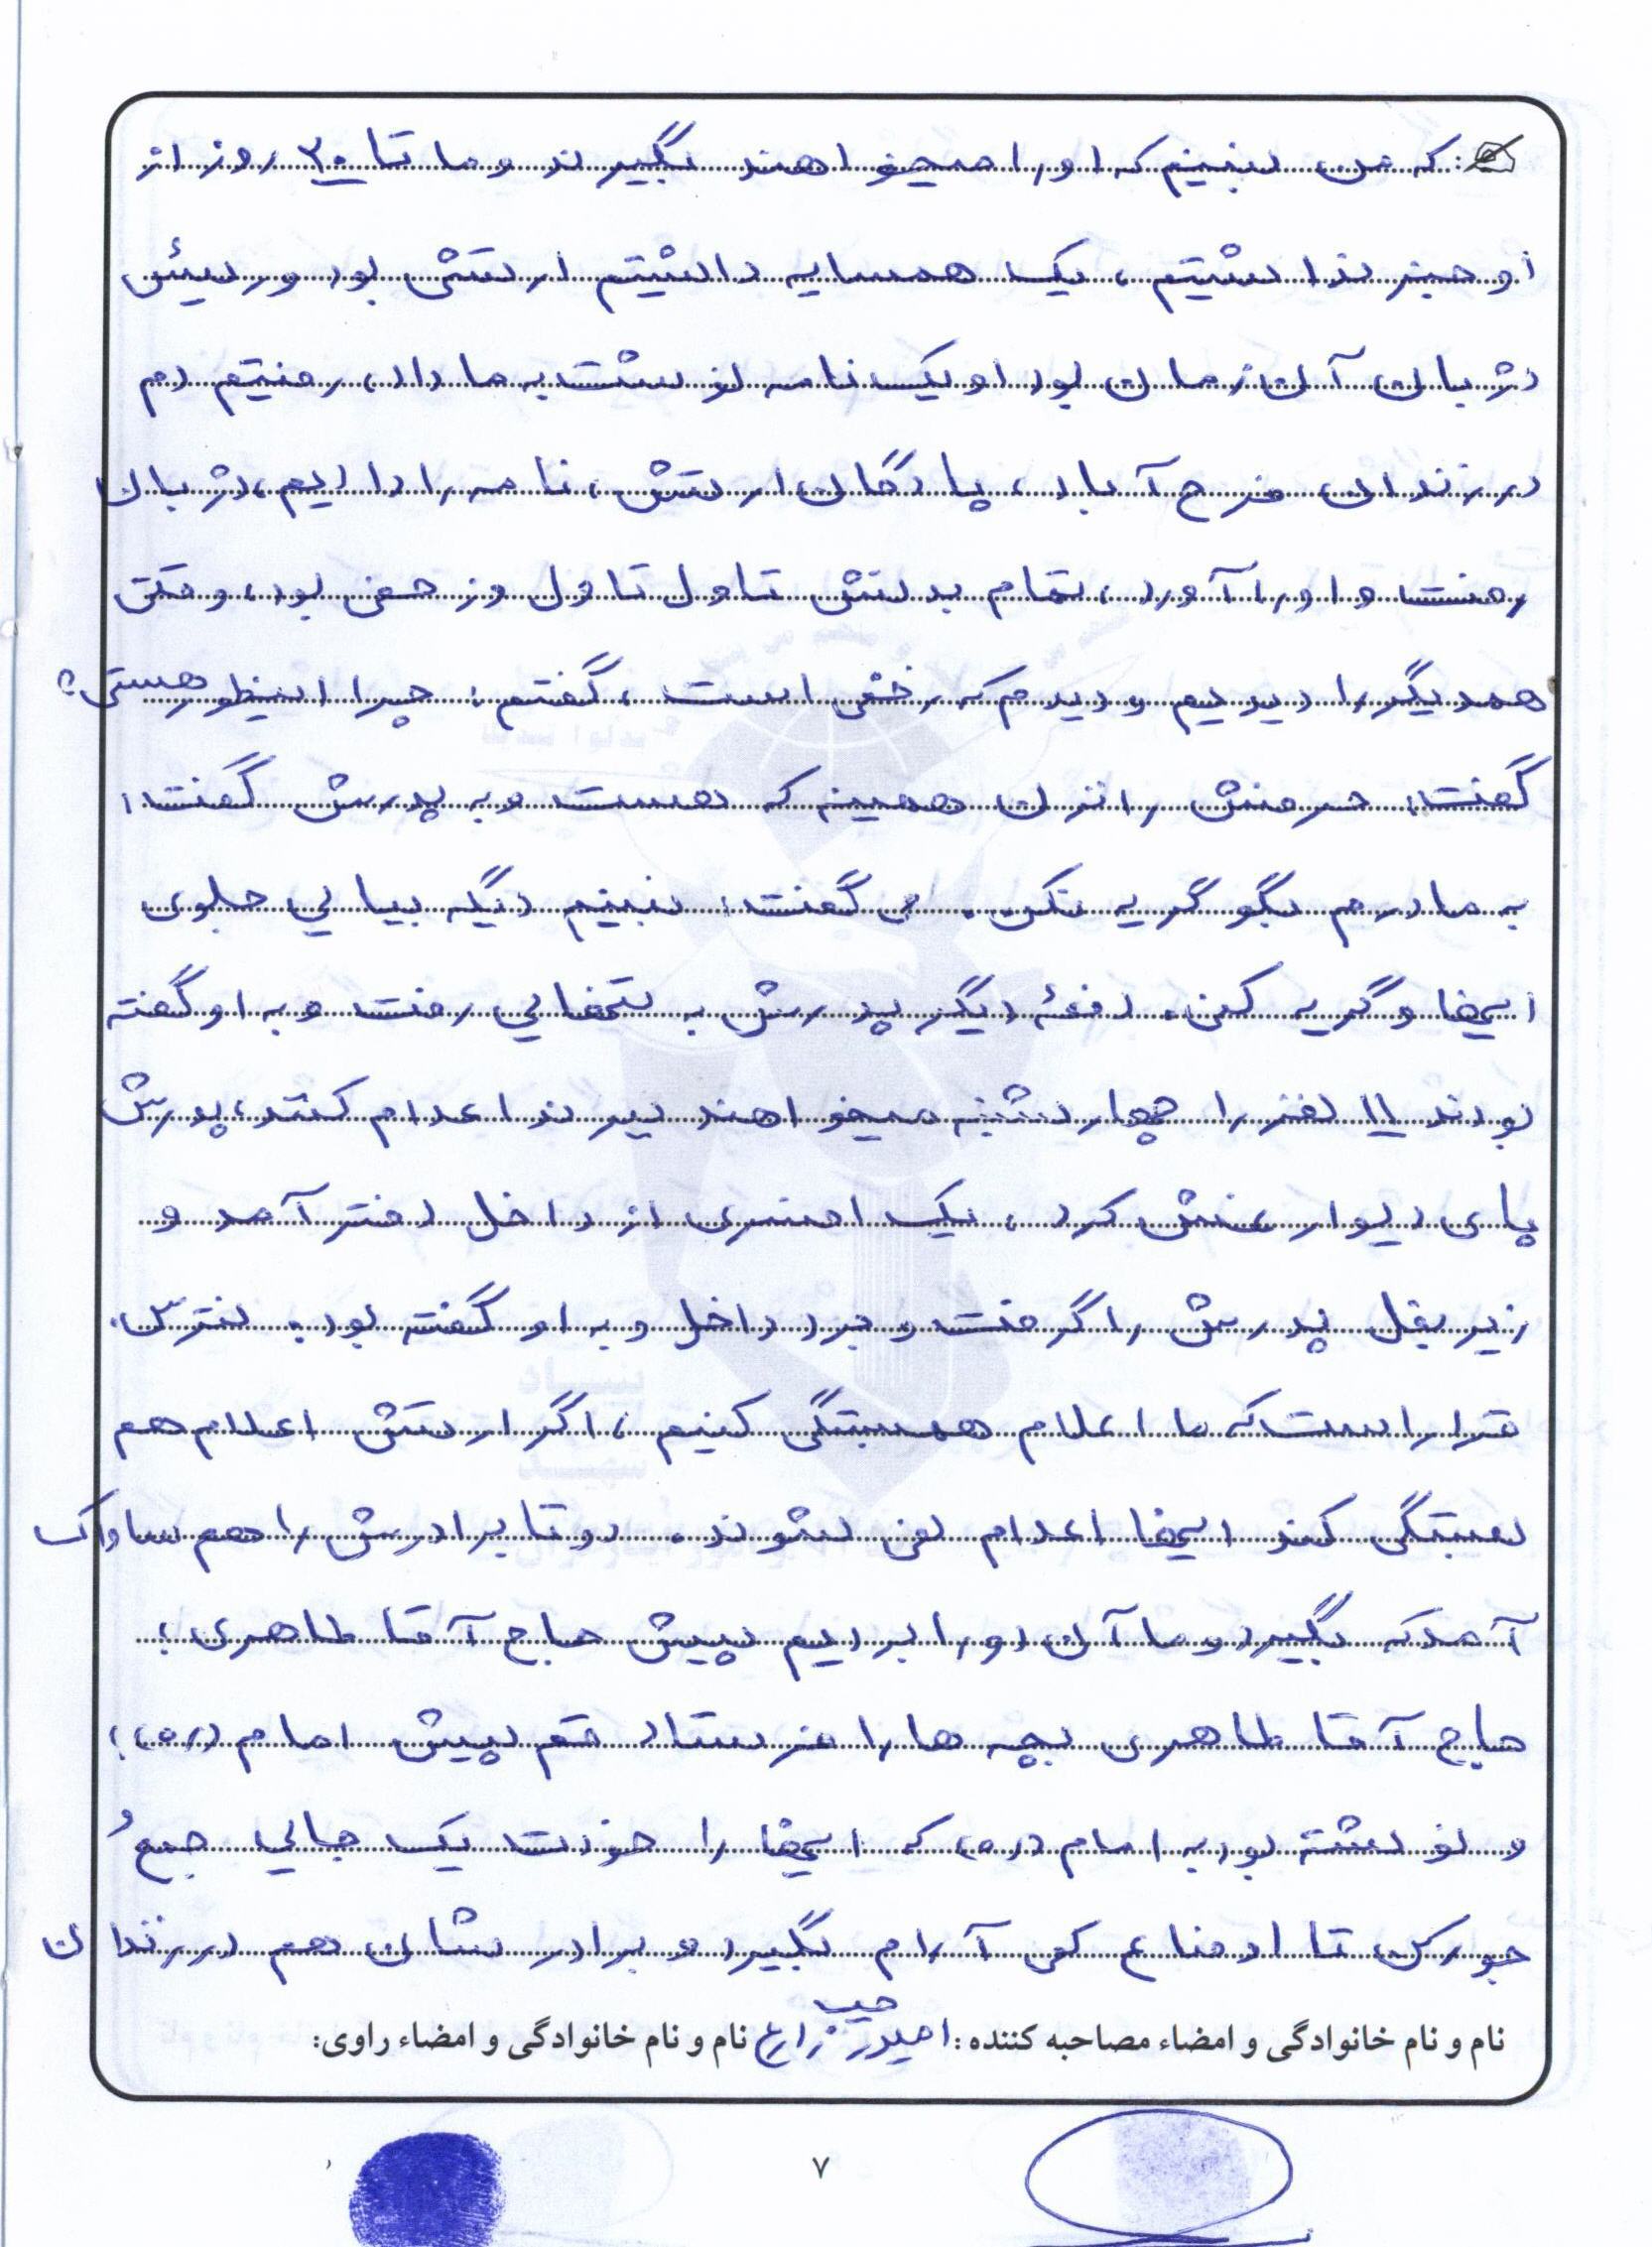 : که من ببینم که او را میخواهند بگیرند و ما تا ۲۰ روز از
او خبر نداشتیم، یک همسایه داشتیم ارتشی بود و رئیس
دژبان آن زمان بود او یک نامه نوشت به ما داد، رفتیم دم
در زندان فرح آباد، پادگان ارتش، نامه را دادیم، دژبان
رفت و او را آورد، تمام بدنش تاول تاول و زخمی بود، وقتی
همدیگر را دیدیم و دیدم که زخمی است، گفتم: چرا اینطور هستی؟
گفت: حرفش را نزن همینه که هست و به پدرش گفت:
به مادرم بگو گریه نکن. می گفت: نبینم دیگه بیایی جلوی
اینها و گریه کنی. دفعهٔ دیگر پدرش به تنهایی رفت و به او گفته
بودند ۱۱ نفر را چهارشنبه میخواهند ببرند اعدام کنند، پدرش
پای دیوار غش کرد، یک افسری از داخل دفتر آمد و
زیر بغل پدرش را گرفت و برد داخل و به او گفته بود: نترس.
قرار است که ما اعلام همبستگی کنیم، اگر ارتش اعلام هم
بستگی کند اینها اعدام نمی شوند. دو تا برادرش را هم ساواک
آمد که بگیرد و ما آن دو را بردیم پیش حاج آقا طاهری؛
حاج آقا طاهری بچه ها را فرستاد قم پیش امام (ره)؛
و نوشته بود به امام (ره) که اینها را خودت یک جایی جمع ُ
جور کن تا اوضاع کمی آرام بگیرد و برادرشان هم در زندان
نام و نام خانوادگی و امضاء مصاحبه کننده: امیدرضا زارع نام و نام خانوادگی و امضاء راوی:
۷